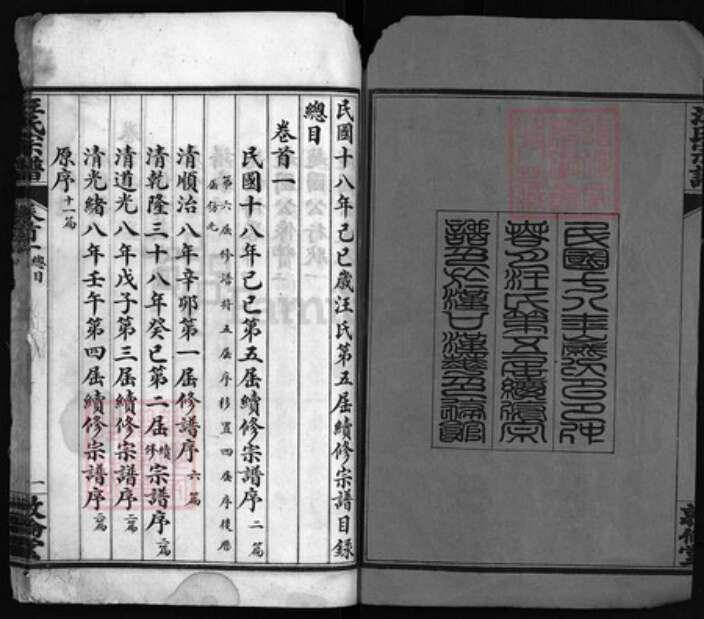 民國十八年歲次己巳仲
春月汪氏第五屆續修宗
譜 於漢口漢
民國十八年己巳歲汪氏第五屆續修宗譜目錄
總目
卷首一
民國十八年己巳第五屆續修宗譜序 二篇
第六屆修譜將五屆序移置四屆序後歷
屆仿
清順治八年辛卯第一屆修譜序 六篇
清乾隆三十八年癸巳第二屆續修宗譜序 篇
清道光八年戊子第三屆續修宗譜序 篇
清光緒八年壬午第四屆續修宗譜序 篇
原序 十一篇
汪氏宗譜 卷首一 總目 一 敦倫堂